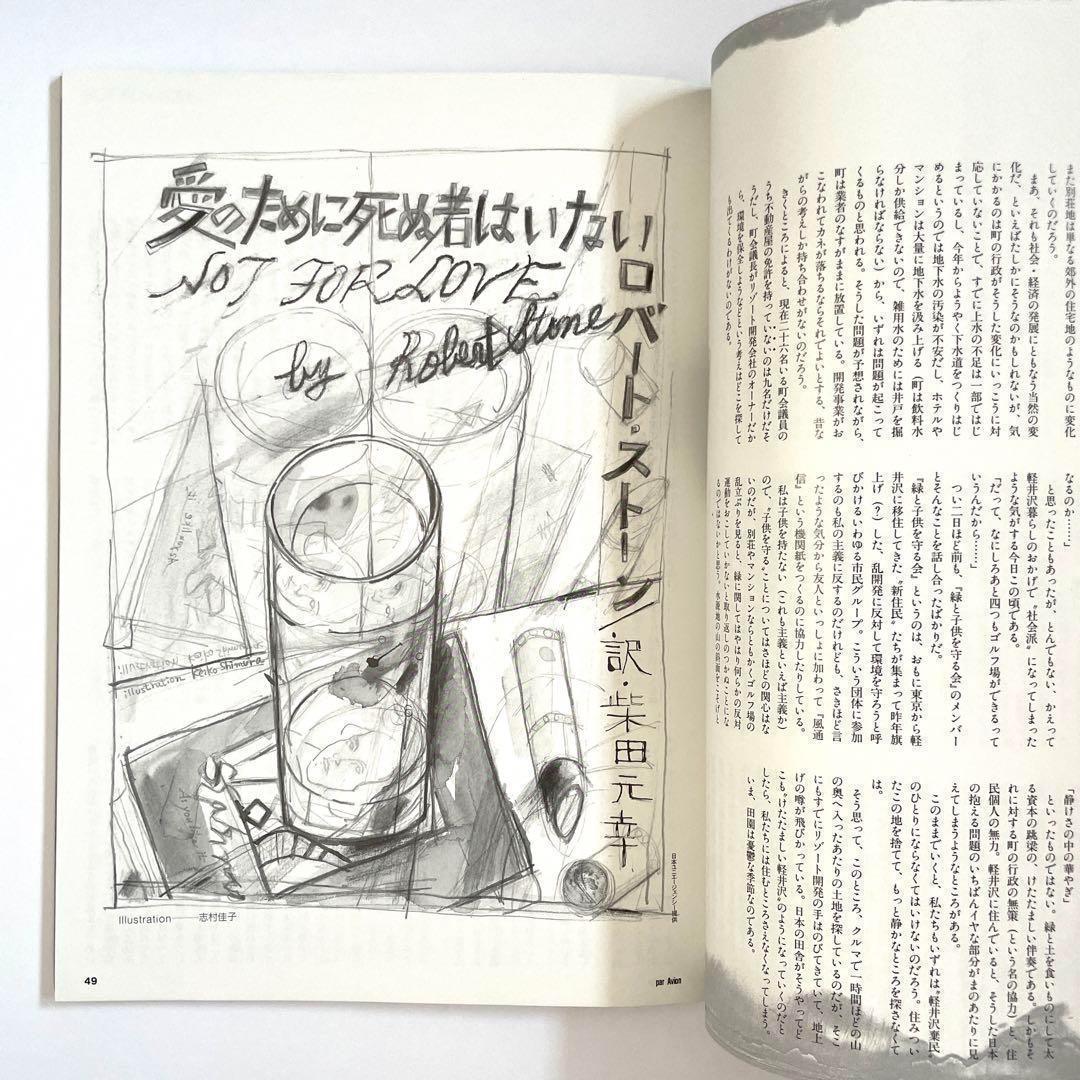 愛のために死ぬ者はいない
NOT FOR LOVE
by Robert Stone
ロバート・ストーン
訳・柴田元幸
illustration Keiko Shimura
日本ユニ・エージェンシー提供
Illustration 志村佳子
49
par Avion
また別荘地は単なる郊外の住宅地のようなものに変化
していくのだろう。
まあ、それも社会・経済の発展にともなう当然の変
化だ、といえばたしかにそうなのかもしれないが、気
にかかるのは町の行政がそうした変化にいっこうに対
応していないことで、すでに上水の不足は一部ではじ
まっているし、今年からようやく下水道をつくりはじ
めるというのでは地下水の汚染が不安だし、ホテルや
マンションは大量に地下水を汲み上げる（町は飲料水
分しか供給できないので、雑用水のためには井戸を掘
らなければならない）から、いずれは問題が起こって
くるものと思われる。そうした問題が予想されながら、
町は業者のなすがままに放置している。開発事業がお
こなわれてカネが落ちるならそれでよいとする、昔な
がらの考えしか持ち合わせがないのだろう。
きくところによると、現在二十六名いる町会議員の
うち不動産屋の免許を持っていないのは九名だけだそ
うだし、町会議長がリゾート開発会社のオーナーだか
ら、環境を保全しようなどという考えはどこを探して
も出てくるわけがないのである。
なるのか……」
と思ったこともあったが、とんでもない、かえって
軽井沢暮らしのおかげで〝社会派〟になってしまった
ような気がする今日この頃である。
「だって、なにしろあと四つもゴルフ場ができるって
いうんだから……」
つい二日ほど前も、『緑と子供を守る会』のメンバー
とそんなことを話し合ったばかりだ。
『緑と子供を守る会』というのは、おもに東京から軽
井沢に移住してきた〝新住民〟たちが集まって昨年旗
上げ（？）した、乱開発に反対して環境を守ろうと呼
びかけるいわゆる市民グループ。こういう団体に参加
するのも私の主義に反するのだけれども、さきほど言
ったような気分から友人といっしょに加わって『風通
信』という機関紙をつくるのに協力したりしている。
私は子供を持たない（これも主義といえば主義か）
ので、〝子供を守る〟ことについてはさほどの関心はな
いのだが、別荘やマンションならともかくゴルフ場の
乱立ぶりを見ると、緑に関してはやはり何らかの反対
運動をおこしていかないと取り返しのつかぬことにな
るのではないかと思う。水源地の山の斜面をこそげと
「静けさの中の華やぎ」
といったものではない。緑と土を食いものにして太
る資本の跳梁の、けたたましい伴奏である。しかもそ
れに対する町の行政の無策（という名の協力）と、住
民個人の無力。軽井沢に住んでいると、そうした日本
の抱える問題のいちばんイヤな部分がまのあたりに見
えてしまうようなところがある。
このままでいくと、私たちもいずれは〝軽井沢棄民〟
のひとりにならなくてはいけないのだろう。住みつい
たこの地を捨てて、もっと静かなところを探さなくて
は。
そう思って、このところ、クルマで一時間ほどの山
の奥へ入ったあたりの土地を探しているのだが、そこ
にもすでにリゾート開発の手はのびてきていて、地上
げの噂が飛びかっている。日本の田舎がそうやってど
こも〝けたたましい軽井沢〟のようになっていくのだと
したら、私たちには住むところさえなくなってしまう。
いま、田園は憂鬱な季節なのである。